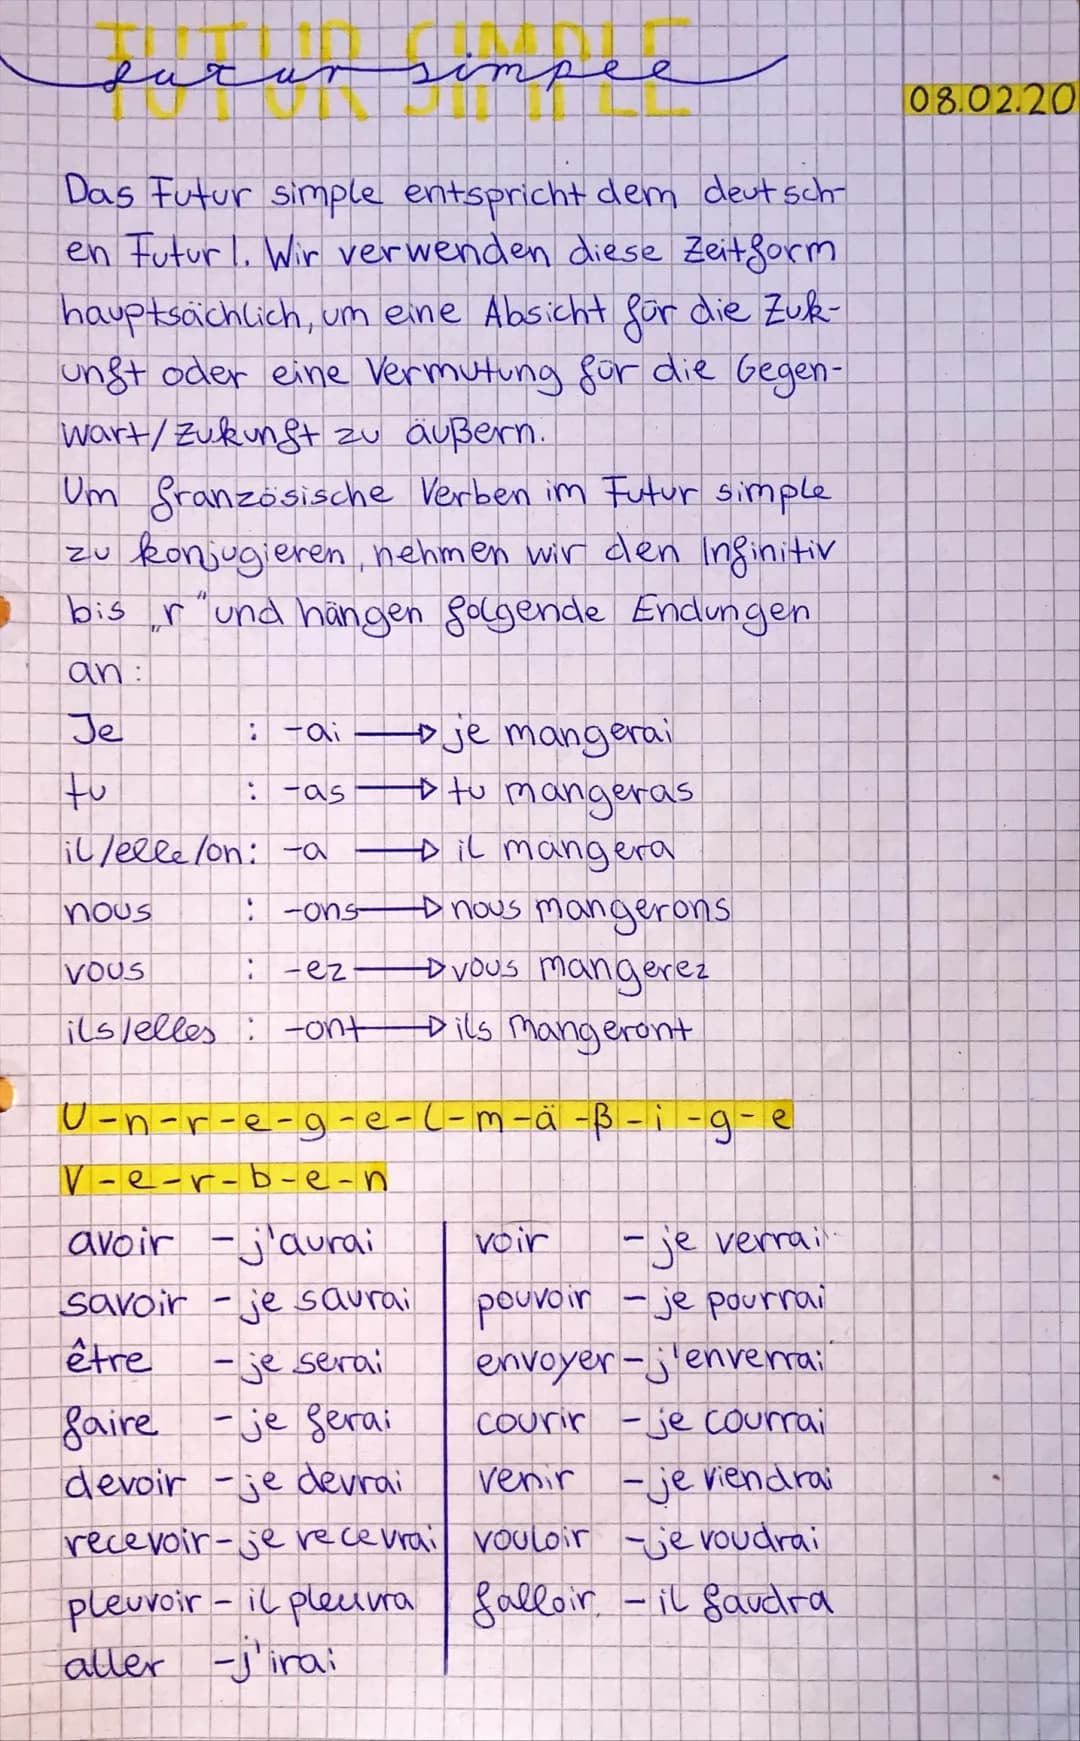 FUTUR SIMPLE
futur simple
08.02.20
Das Futur simple entspricht dem deutsch-
en Futur I. Wir verwenden diese Zeitform
hauptsächlich, um eine Absicht für die Zuk-
unft oder eine Vermutung für die Gegen-
wart/Zukunft zu äußern.
Um französische Verben im Futur simple
zu konjugieren, nehmen wir den Infinitiv
bis „r“ und hängen folgende Endungen
an:
Je : -ai → je mangerai
tu : -as → tu mangeras
il/elle/on: -a → il mangera
nous : -ons → nous mangerons
vous : -ez → vous mangerez
ils/elles : -ont → ils mangeront
U-n-r-e-g-e-l-m-ä-ß-i-g-e
V-e-r-b-e-n
avoir - j'aurai
savoir - je saurai
être - je serai
faire - je ferai
devoir - je devrai
recevoir - je recevrai
pleuvoir - il pleuvra
aller - j'irai
voir - je verrai
pouvoir - je pourrai
envoyer - j'enverrai
courir - je courrai
venir - je viendrai
vouloir - je voudrai
falloir - il faudra